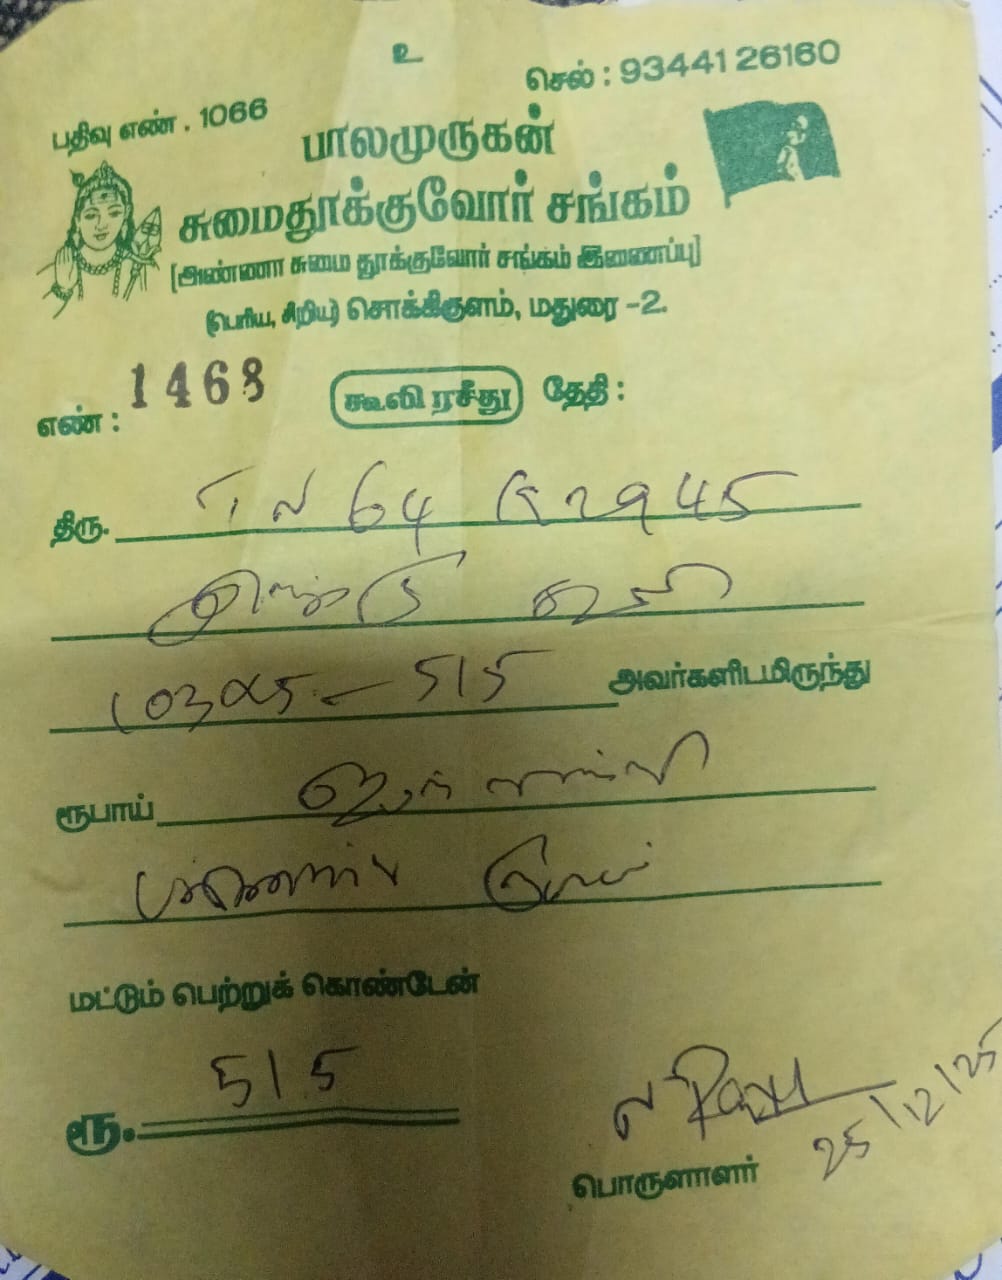 உ
செல் : 93441 26160
பதிவு எண் . 1066
பாலமுருகன்
சுமைதூக்குவோர் சங்கம்
(அண்ணா சுமை தூக்குவோர் சங்கம் இணைப்பு)
(பெரிய, சிறிய) சொக்கிகுளம், மதுரை -2.
எண் : 1468 கூலி ரசீது தேதி :
திரு. 64 2945
515 அவர்களிடமிருந்து
ரூபாய்
மட்டும் பெற்றுக் கொண்டேன்
ரூ. 515
25/12/25
பொருளாளர்